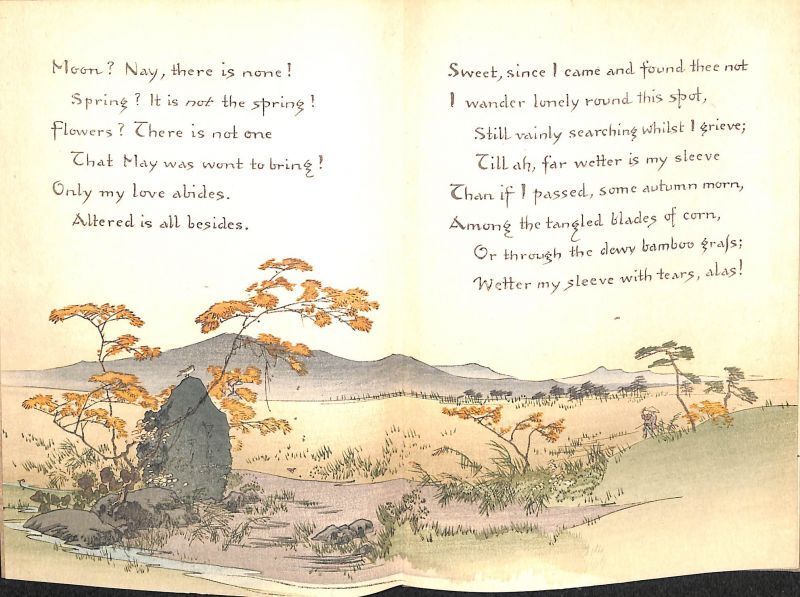 Moon? Nay, there is none!
Spring? It is not the spring!
Flowers? There is not one
That May was wont to bring!
Only my love abides.
Altered is all besides.
Sweet, since I came and found thee not
I wander lonely round this spot,
Still vainly searching whilst I grieve;
Till ah, far wetter is my sleeve
Than if I passed, some autumn morn,
Among the tangled blades of corn,
Or through the dewy bamboo graſs;
Wetter my sleeve with tears, alas!